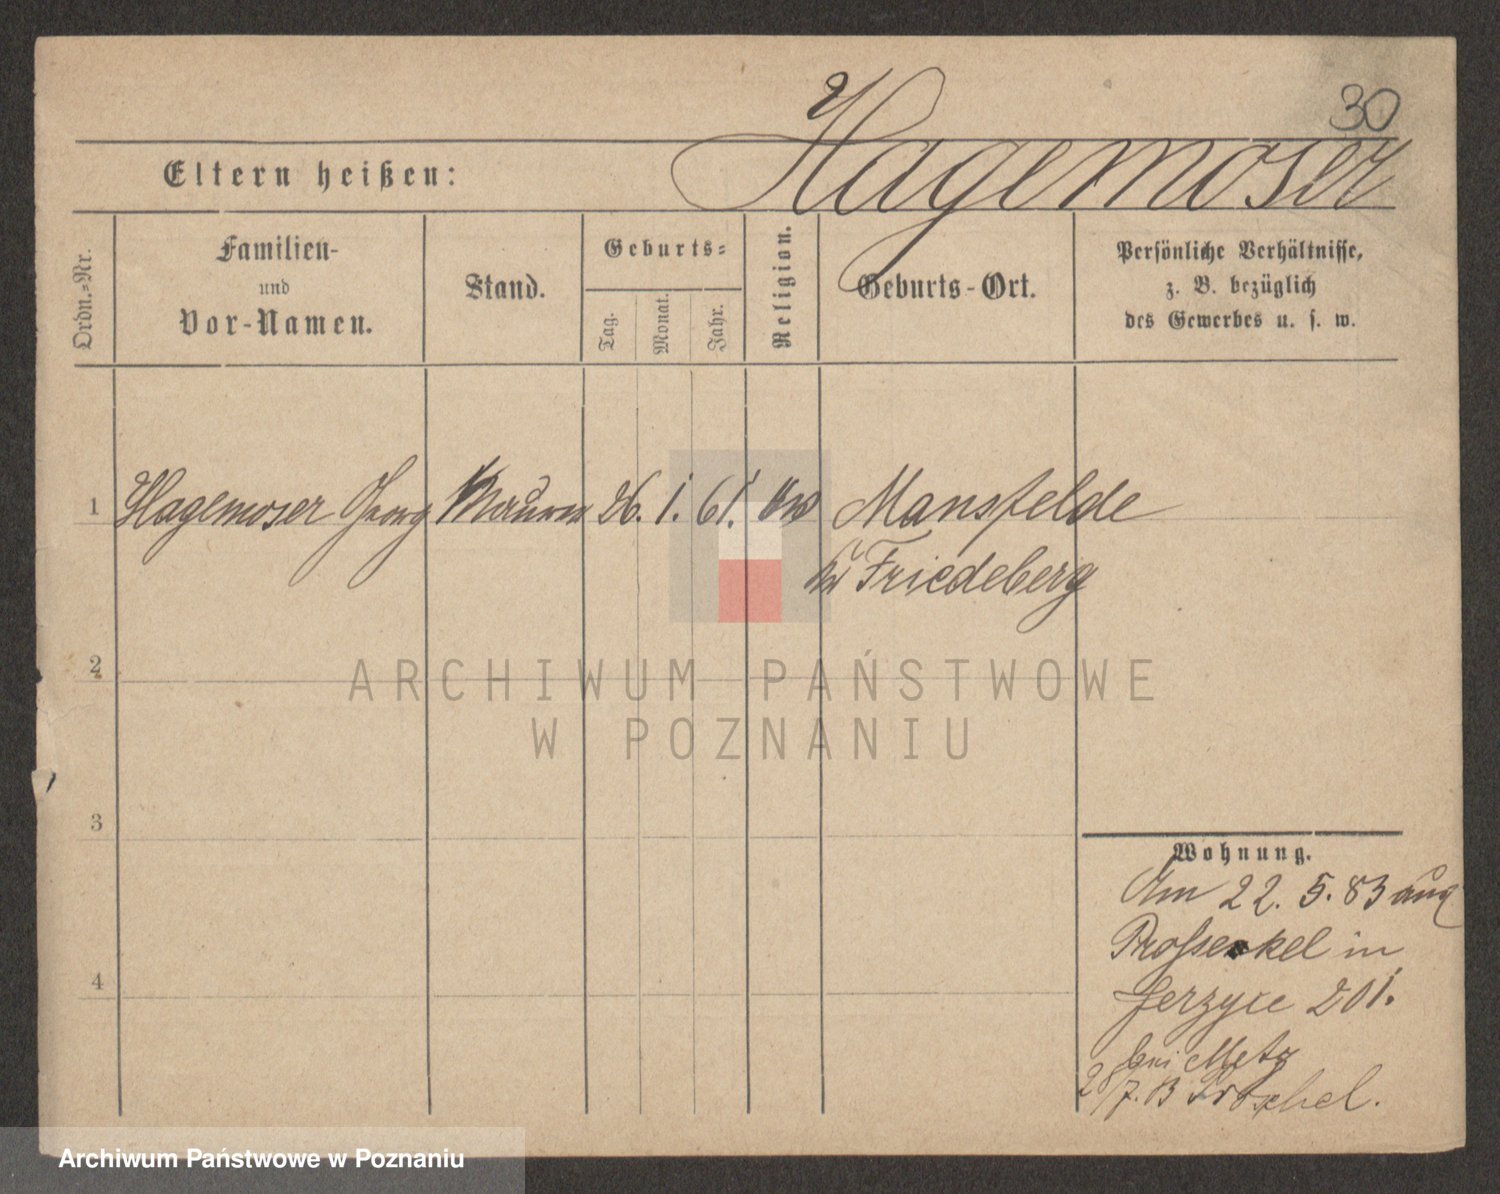 30
Hagemoser
Eltern heißen:
Ordn.=Nr.
Familien-
und
Vor-Namen.
Stand.
Geburts=
Tag.
Monat.
Jahr.
Religion.
Geburts-Ort.
Persönliche Verhältnisse,
z. B. bezüglich
des Gewerbes u. s. w.
1 Hagemoser Georg Maurer 26. 1. 61. Mansfelde
Friedeberg
2
3
4
Wohnung.
Am 22. 5. 83
in
Jerzyce 201.
bei Metz
ARCHIWUM PAŃSTWOWE
W POZNANIU
Archiwum Państwowe w Poznaniu